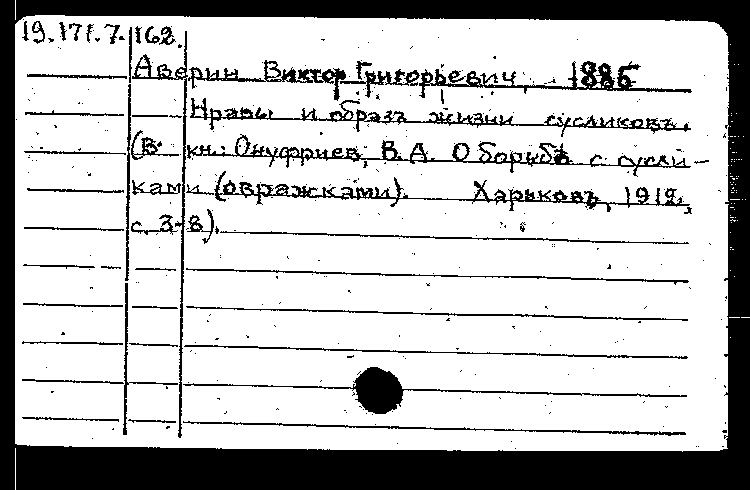 19.171.7.162.
Аверин Виктор Григорьевич, 1885
Нравы и образъ жизни сусликовъ.
(В кн.: Онуфриев, В.А. О борьбѣ с сусли-
ками (овражками). Харьковъ, 1912,
с. 3-8).